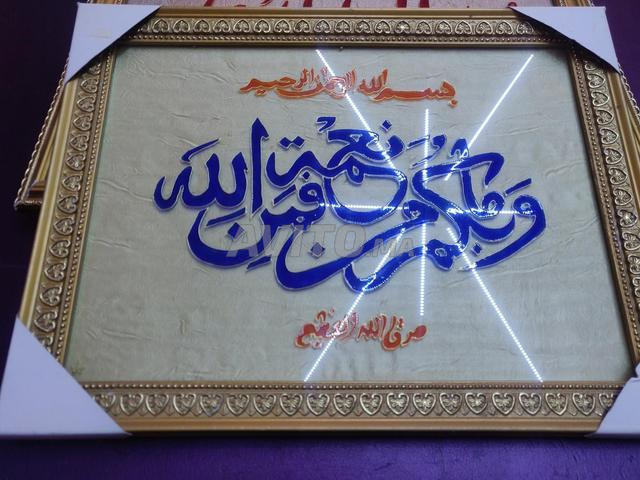 بسم الله الرحمن الرحيم
وما بكم من نعمة فمن الله
صدق الله العظيم
AVITO.MA